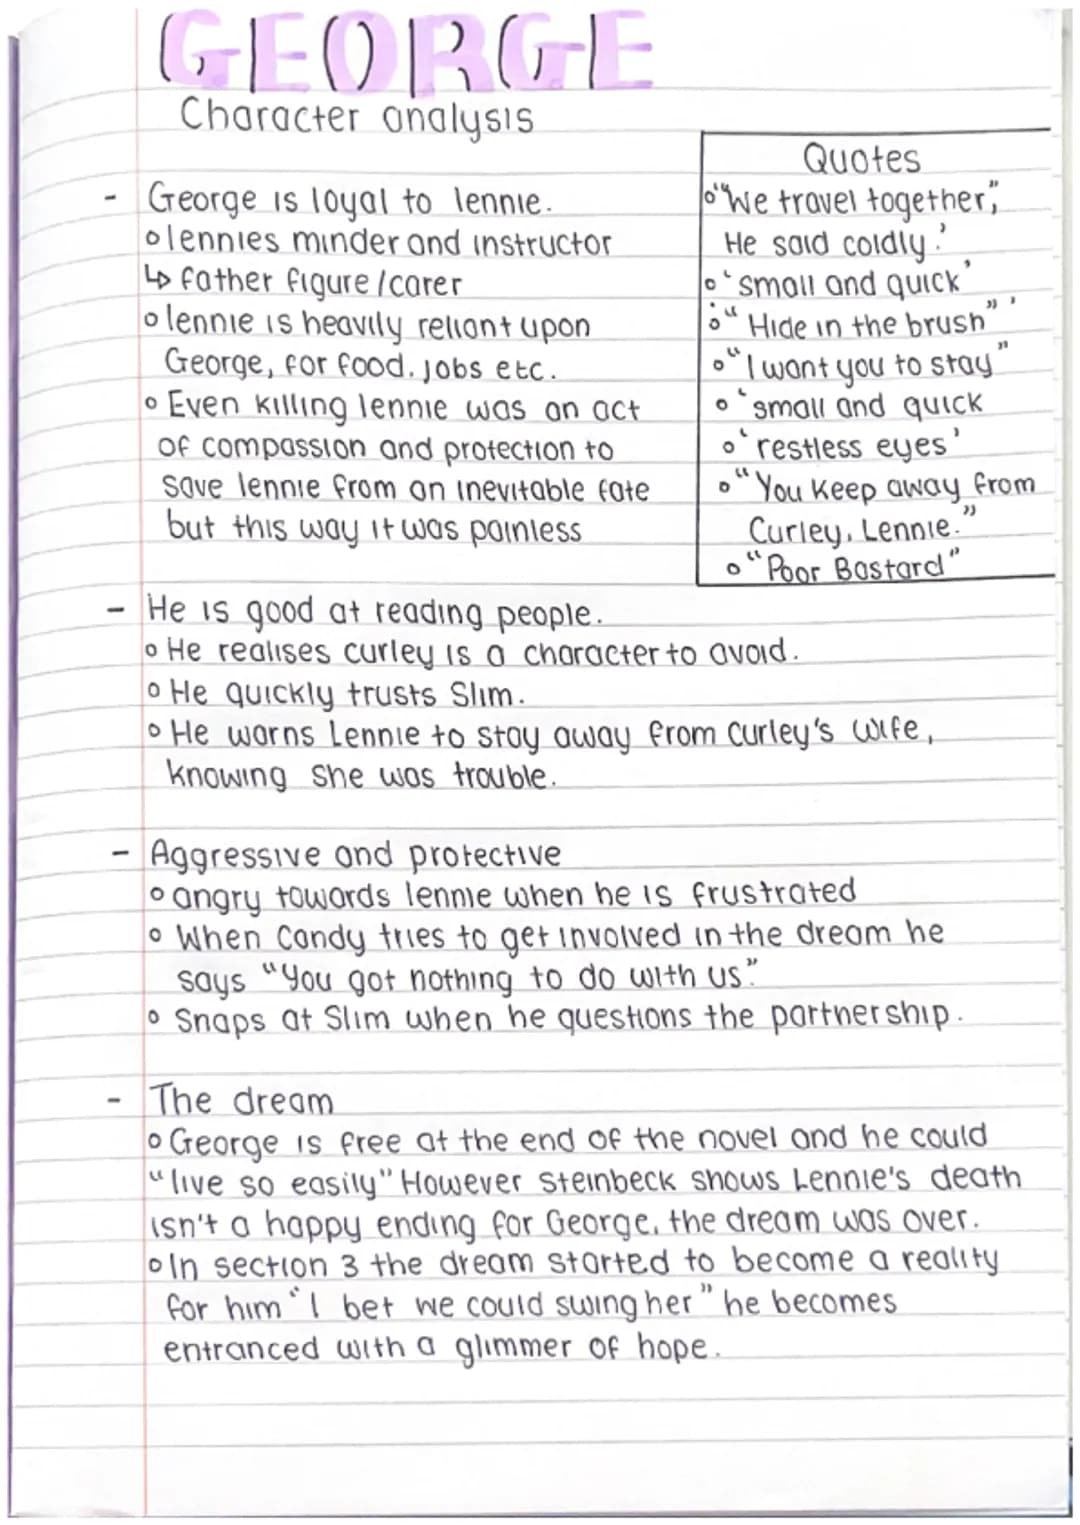 GEORGE
Character analysis
- George is loyal to lennie.
o lennies minder and instructor
↳ father figure/carer
o lennie is heavily reliant upon
George, for food. jobs etc.
o Even killing lennie was an act
of compassion and protection to
save lennie from an inevitable fate
but this way it was painless
Quotes
o '"We travel together",
He said coldly.'
o 'small and quick'
o '"Hide in the brush"'
o "I want you to stay"
o 'small and quick
o 'restless eyes'
o "You keep away from
Curley, Lennie."
o "Poor Bastard"
- He is good at reading people.
o He realises curley is a character to avoid.
o He quickly trusts Slim.
o He warns Lennie to stay away from Curley's wife,
knowing she was trouble.
- Aggressive and protective
o angry towards lennie when he is frustrated
o When Candy tries to get involved in the dream he
says "You got nothing to do with us."
o Snaps at Slim when he questions the partnership.
- The dream
o George is free at the end of the novel and he could
"live so easily" However Steinbeck shows Lennie's death
isn't a happy ending for George, the dream was over.
o In section 3 the dream started to become a reality
for him "I bet we could swing her" he becomes
entranced with a glimmer of hope.